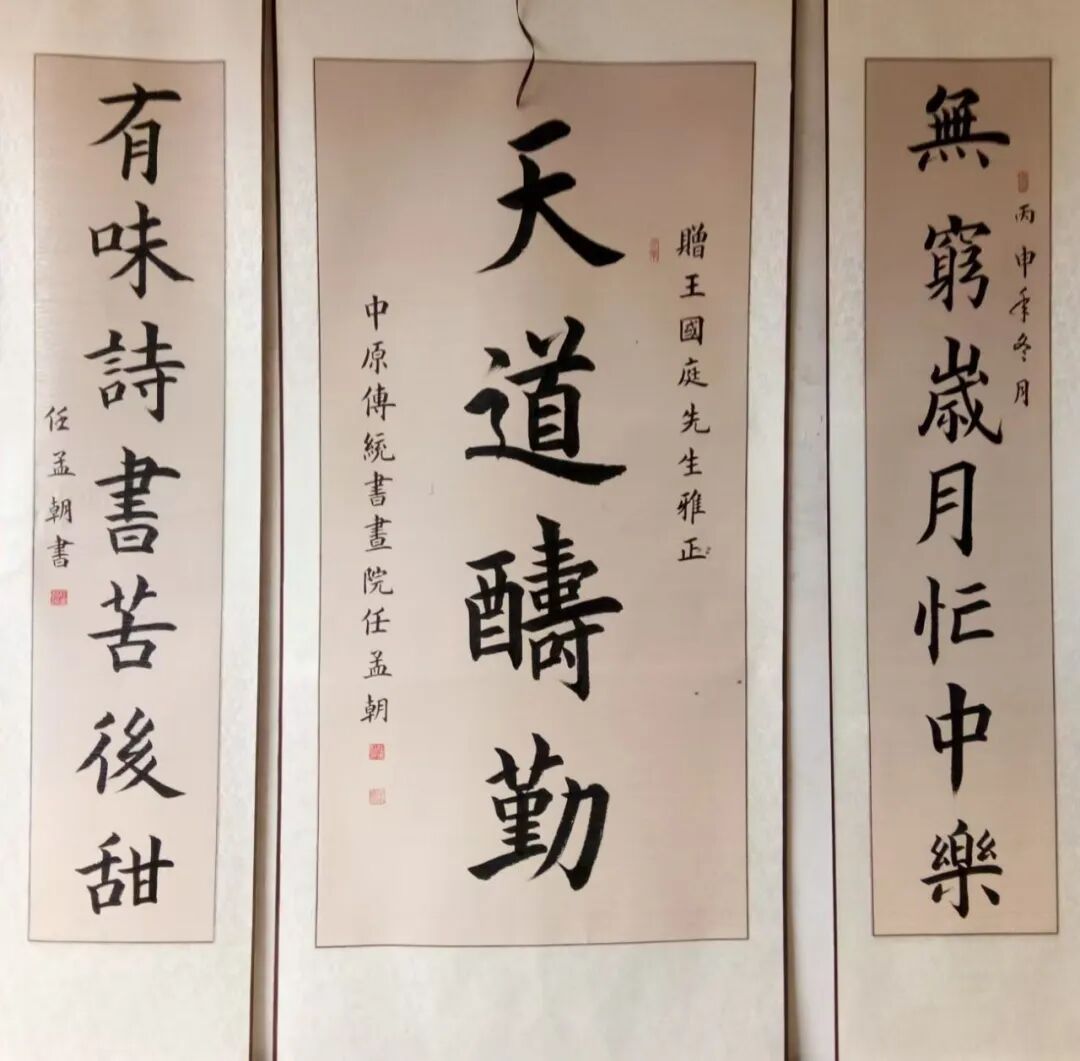 丙申年冬月
無窮歲月忙中樂
贈王國庭先生雅正
天道醻勤
中原傳統書畫院任孟朝
有味詩書苦後甜
任孟朝書